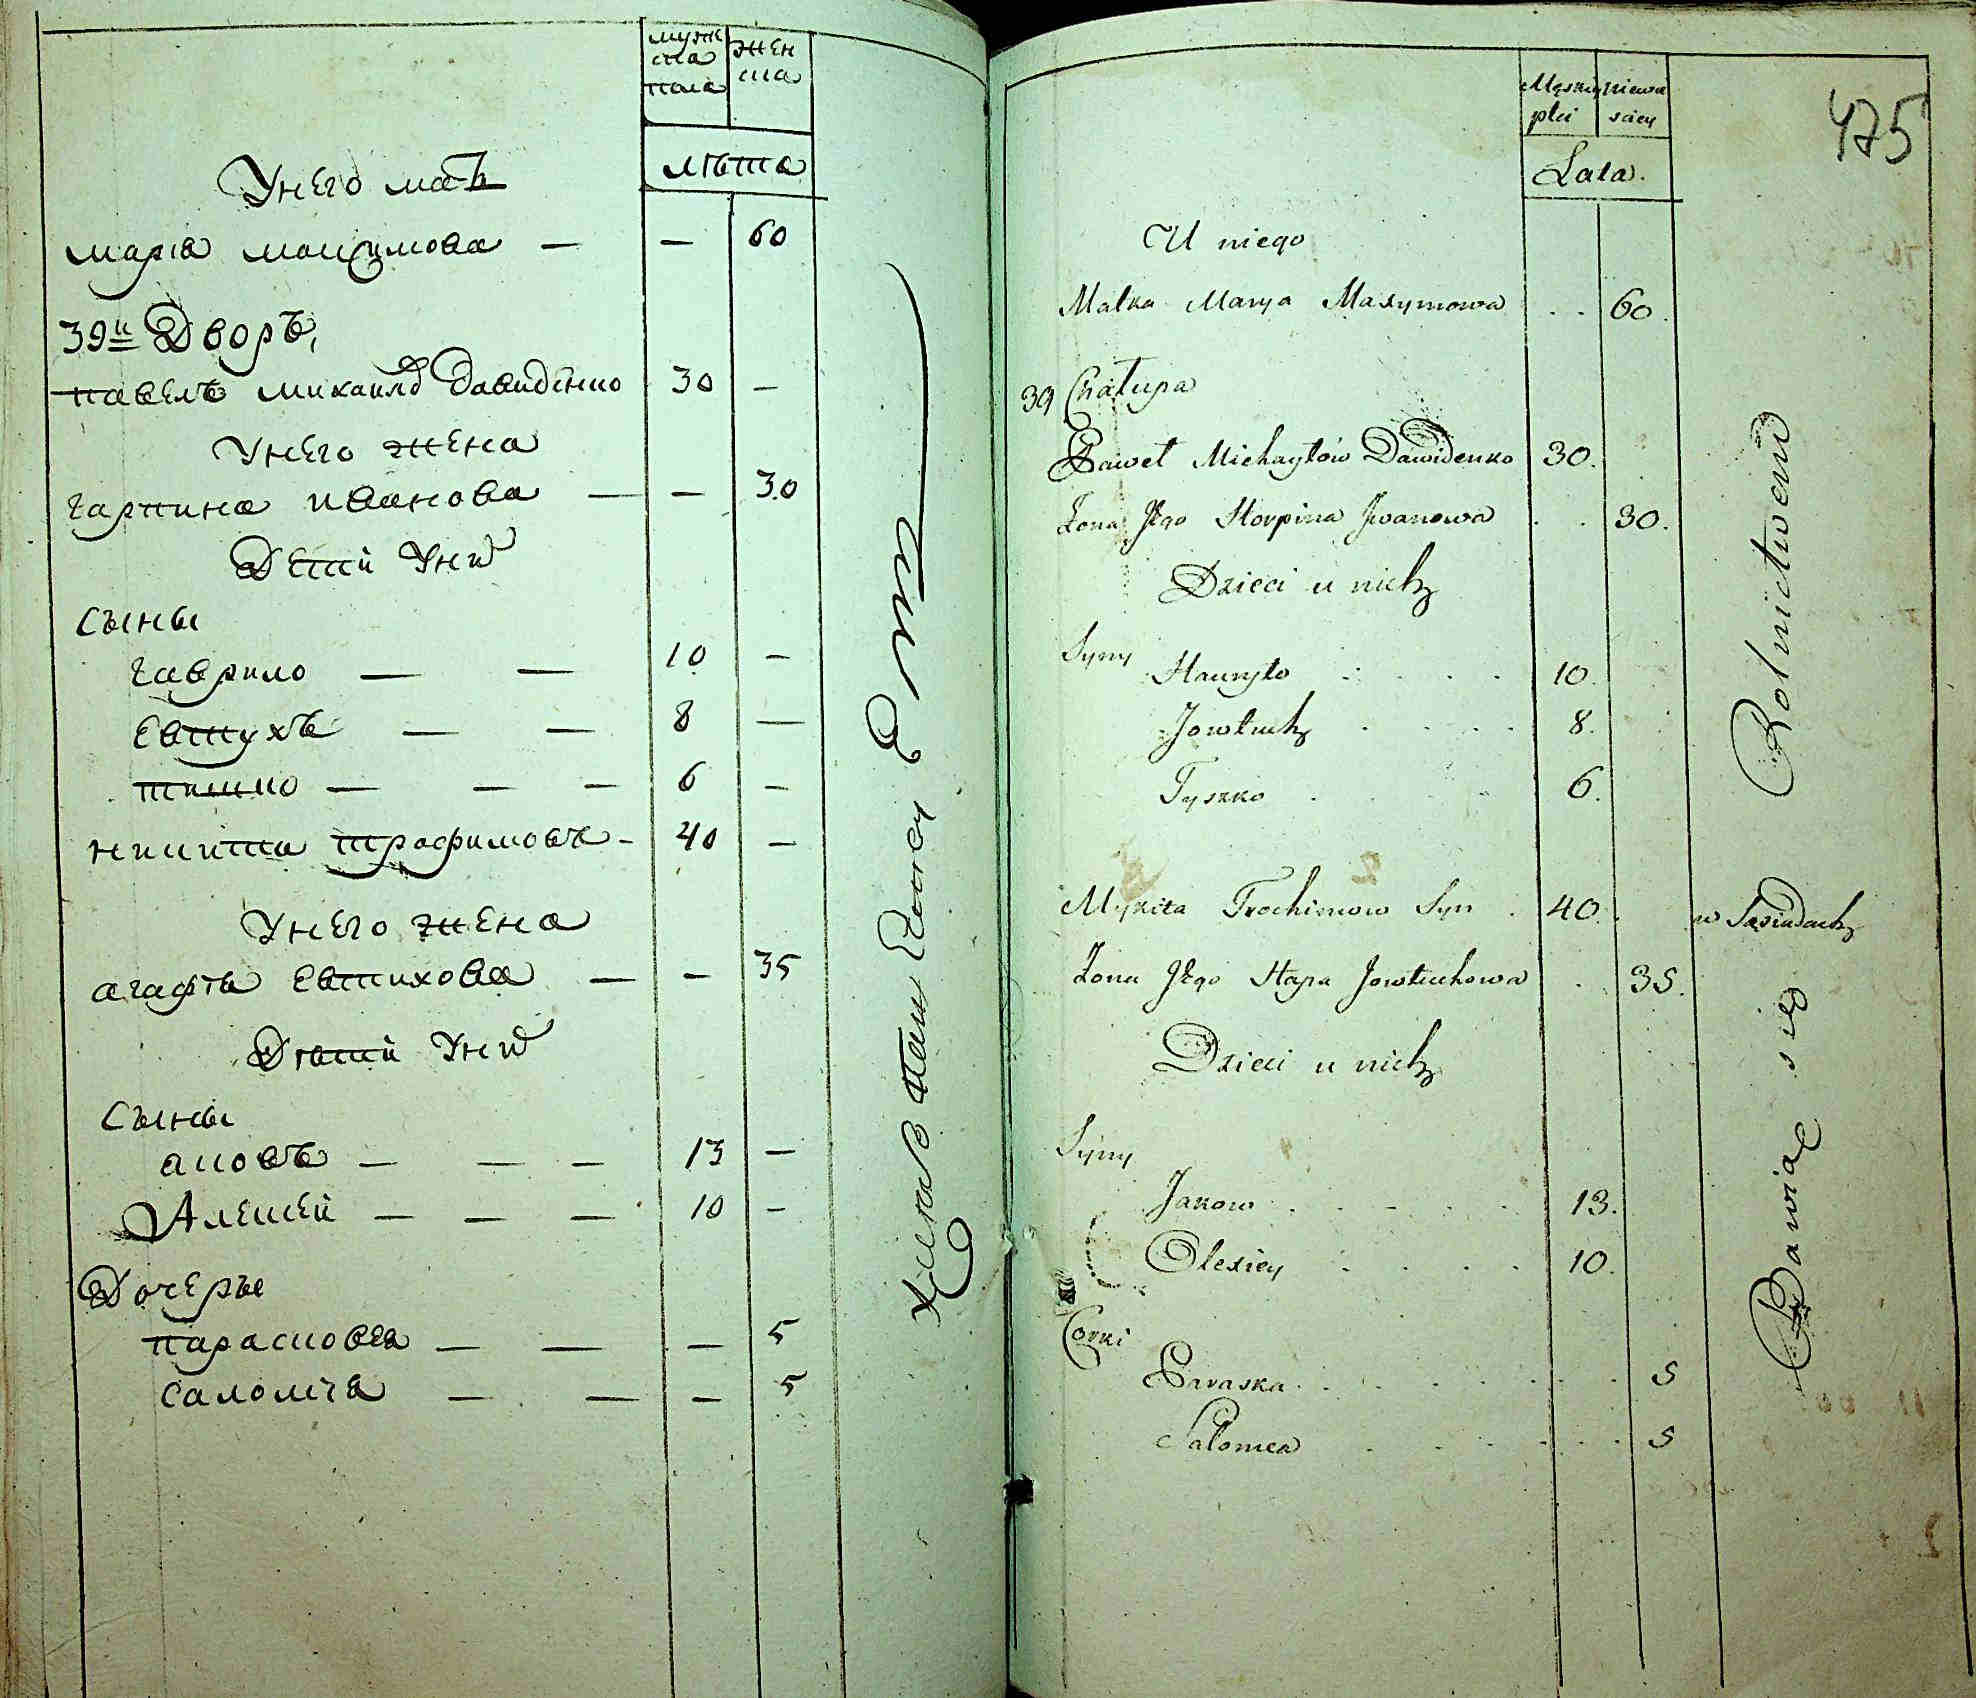 мужеска пола
женска
лѣта
У него мать
Марія Максимова — — 60
39й Дворъ,
Павелъ Михайловъ Давиденко 30 —
У него жена
Гарпина Иванова — — 30
Дети У них
Сыны
Гаврило — — 10 —
Евтухъ — — 8 —
Тишко — — — 6 —
Никита Трофимовъ - 40 —
У него жена
Агафія Евтихова — — 35
Дѣти У них
Сыны
Яковъ — — — 13 —
Алексей — — — 10 —
Дочеры
Парасковея — — — 5
Саломѣя — — — 5
475
Męskiey płci
niewieściey
Lata.
U niego
Matka Marya Maxymowa . . 60.
39 Chałupa
Paweł Michayłów Dawidenko 30.
Żona Jego Horpina Jwanowa . . 30.
Dzieci u nich
Syny
Hauryło . . . . 10.
Jowtuch . . . . 8.
Tyszko . . . 6.
Mykita Trochimow Syn . 40. w Sąsiadach
Żona Jego Hapa Jowtuchowa . 35.
Dzieci u nich
Syny
Jakow . . . . . 13.
Olexiey . . . . 10.
Corki
Paraska . . . . . . . 5
Salomea . . . . . . . 5
Bawią się Rolnictwem